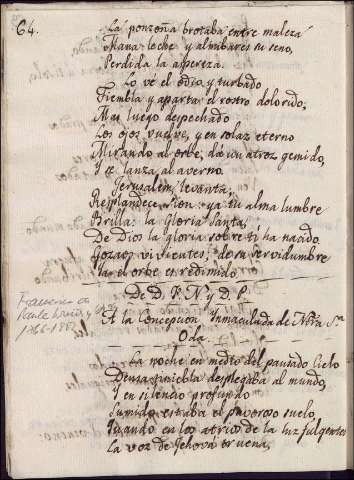 64.
La ponzoña brotaba entre maleza
Mana leche y almibares su seno,
Perdida la aspereza.
Lo vé el odio, y turbado
Tiembla y aparta el rostro dolorido;
Mas luego despechado
Los ojos vuelve, y en solaz eterno
Mirando al orbe, da un atroz gemido,
Y se lanza al averno.
Jerusalem, levanta,
Resplandece, Sion: ya tu alma lumbre
Brilla: la Gloria Santa,
De Dios la gloria sobre ti ha nacido.
Gozaos, vivientes; de su servidumbre
Ya el orbe es redimido.
De D. F. N. y D. P.
A la Concepcion Inmaculada de Ntra Sra
Oda.
La noche en medio del pausado Cielo
Densa tiniebla desplegaba al mundo,
Y en silencio profundo
Sumido estaba el pavoroso suelo,
Cuando en los atrios de la luz fulgentes
La voz de Jehová truena,
Francisco de
Paula